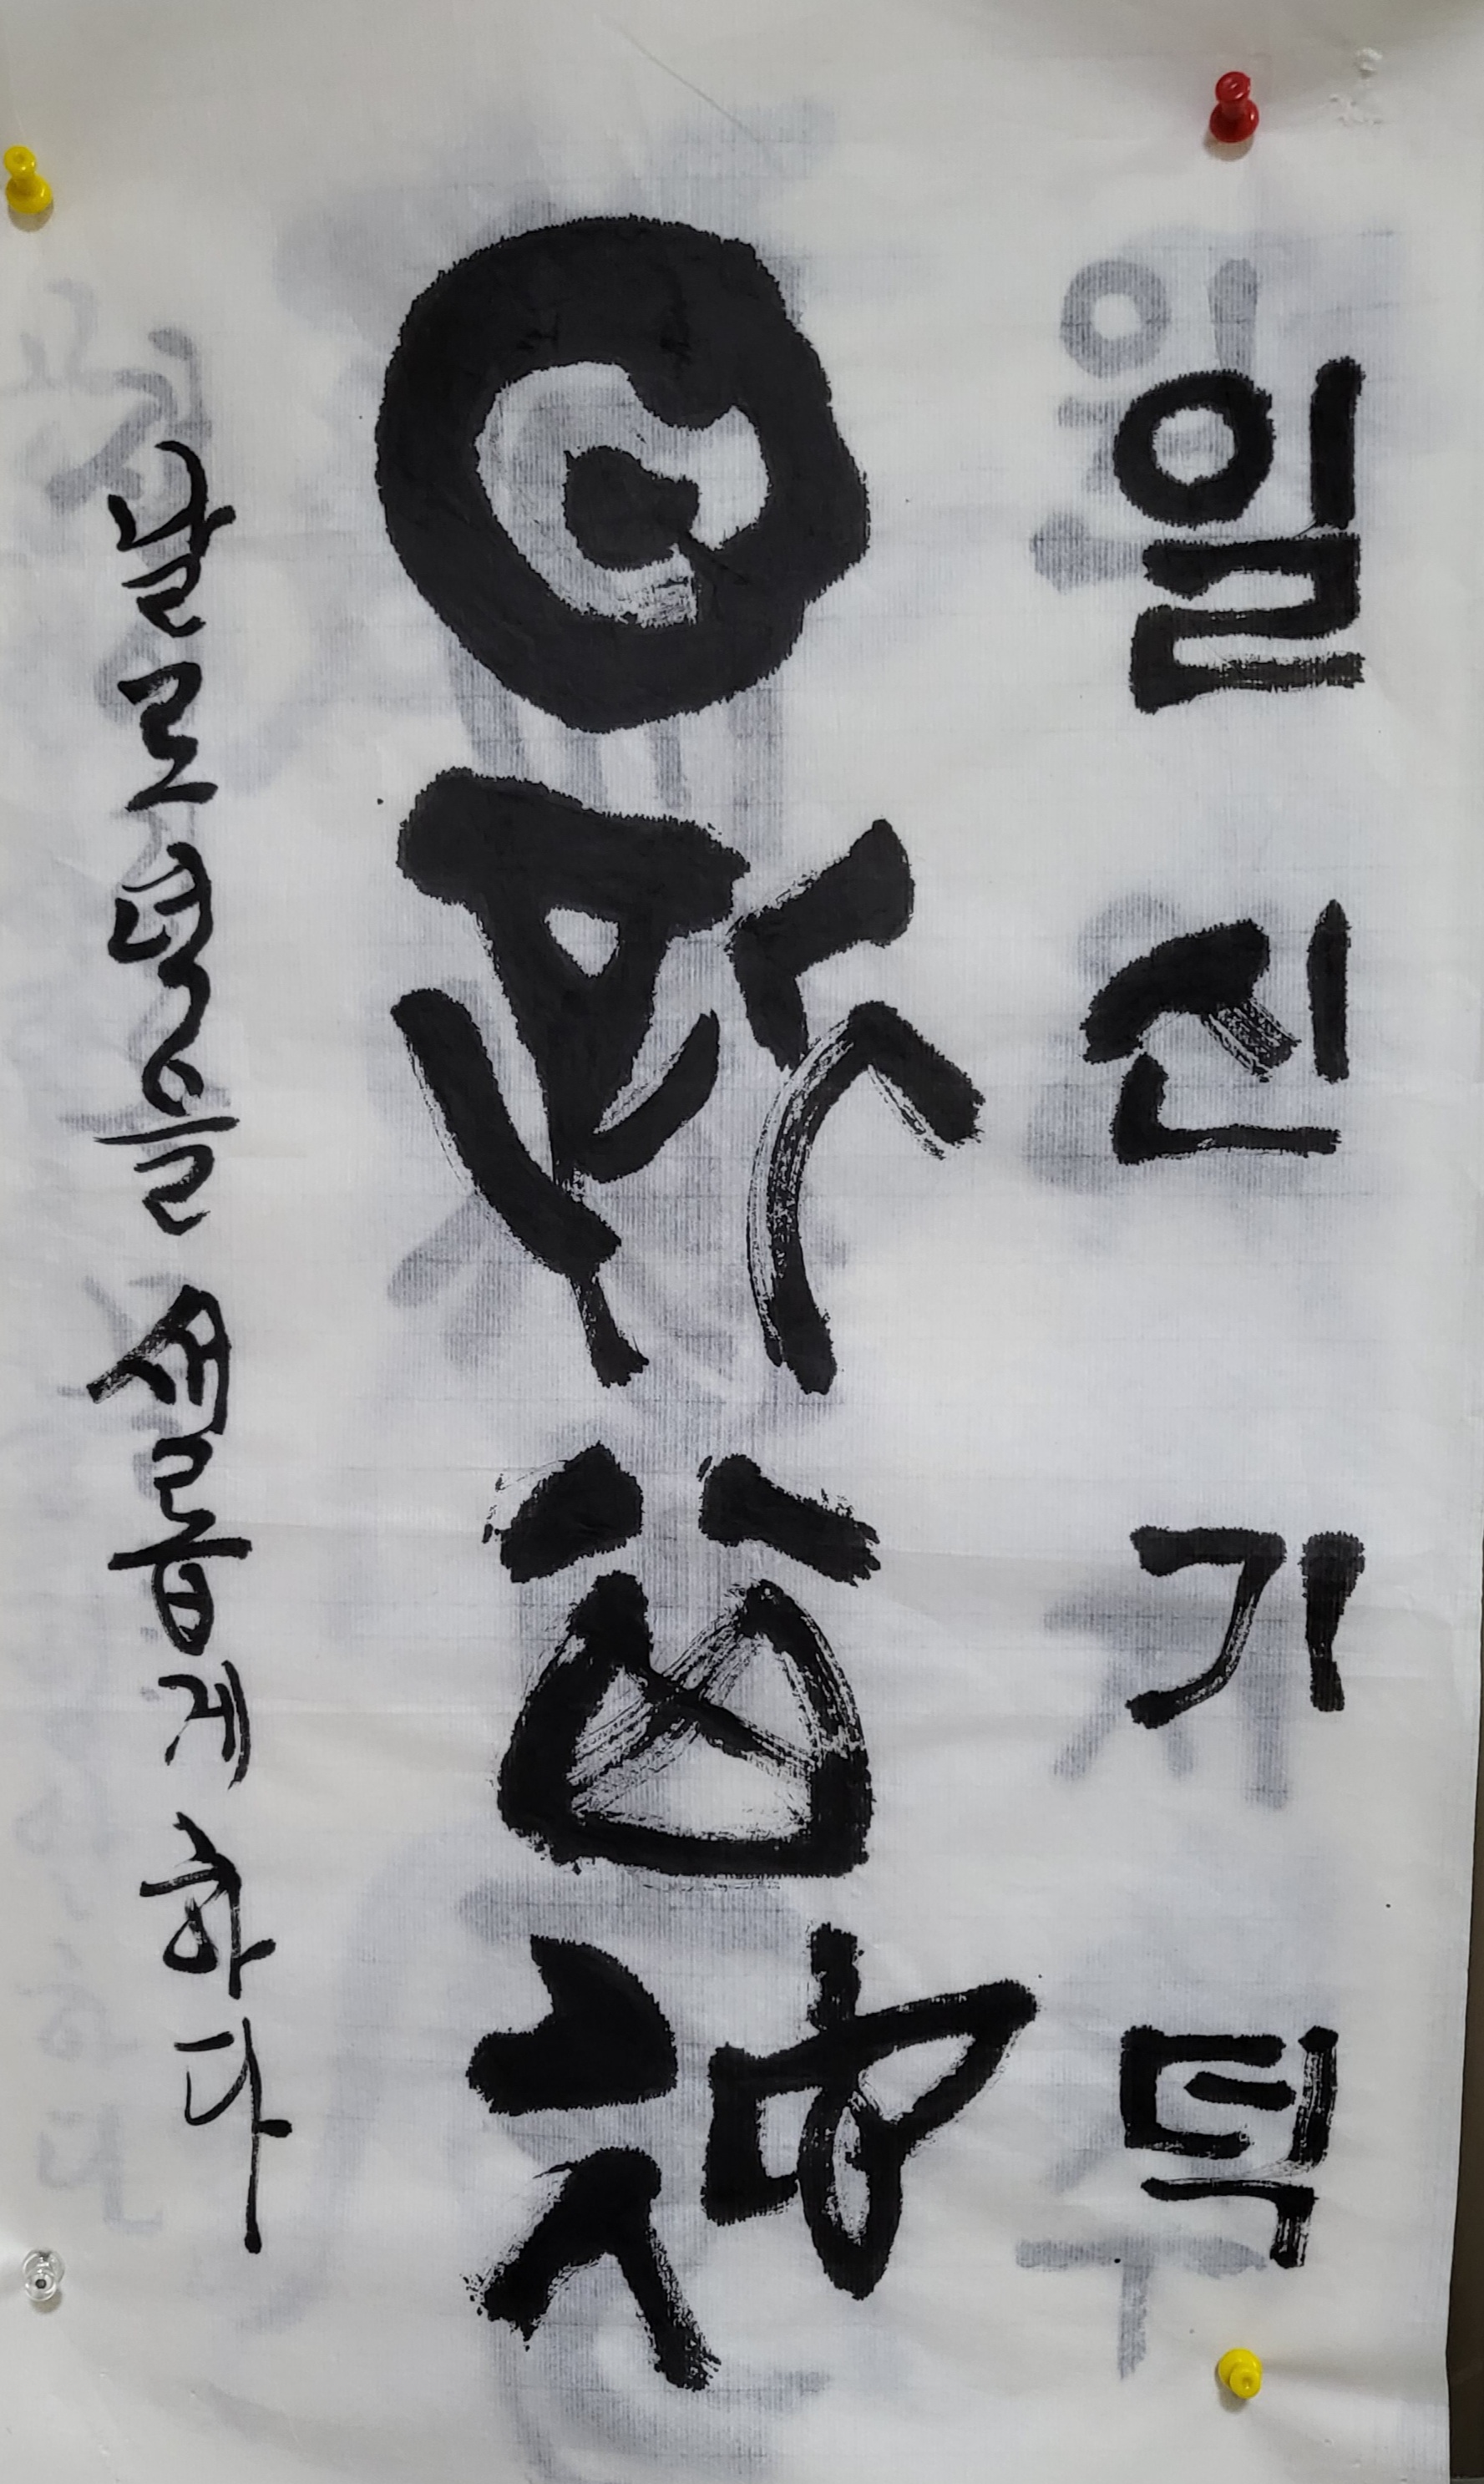 일신기덕
日新其德
날로 덕을 새롭게 하다